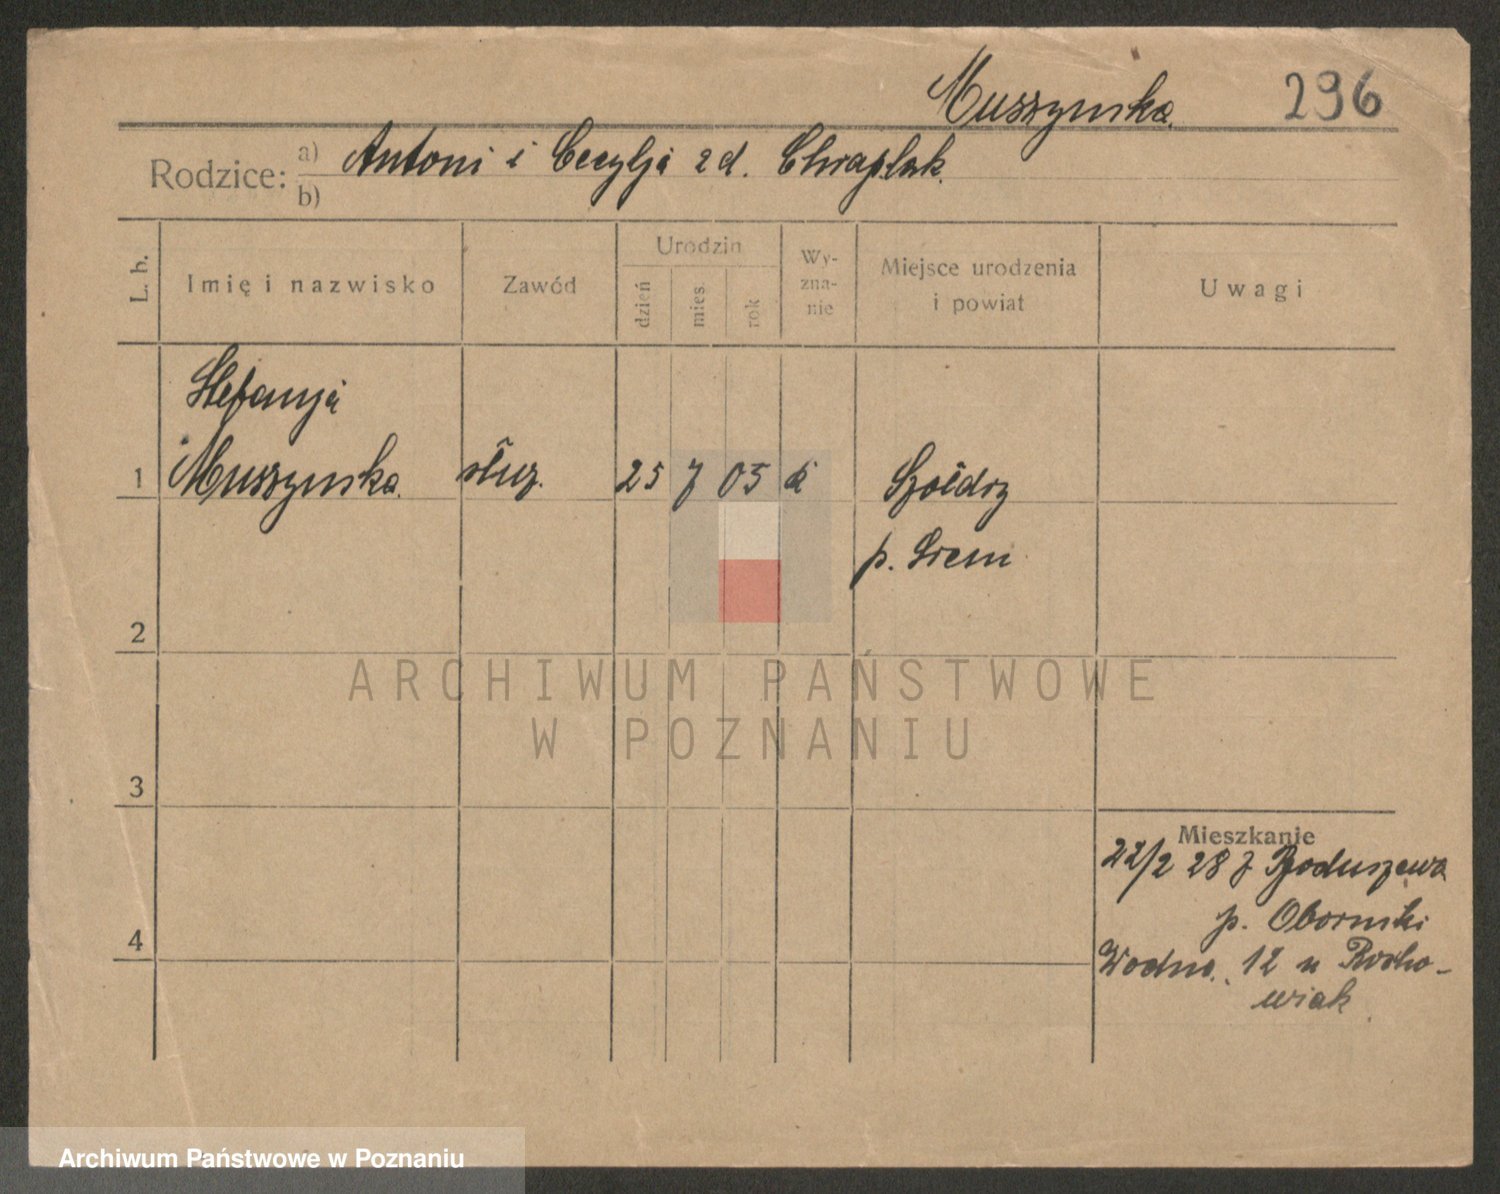 Muszyńska
296
Rodzice: a) Antoni i Cecylja zd. Chraplak
b)
L. b.
Imię i nazwisko
Zawód
Urodzin
dzień
mies.
rok
Wy-
zna-
nie
Miejsce urodzenia
i powiat
Uwagi
Stefanja
1 Muszyńska służ. 25 7 05 k Szołdry
p. Śrem
2
ARCHIWUM PAŃSTWOWE
W POZNANIU
3
Mieszkanie
22/2 28 z
p. Oborniki
4
Wodna 12 u
wiak
Archiwum Państwowe w Poznaniu